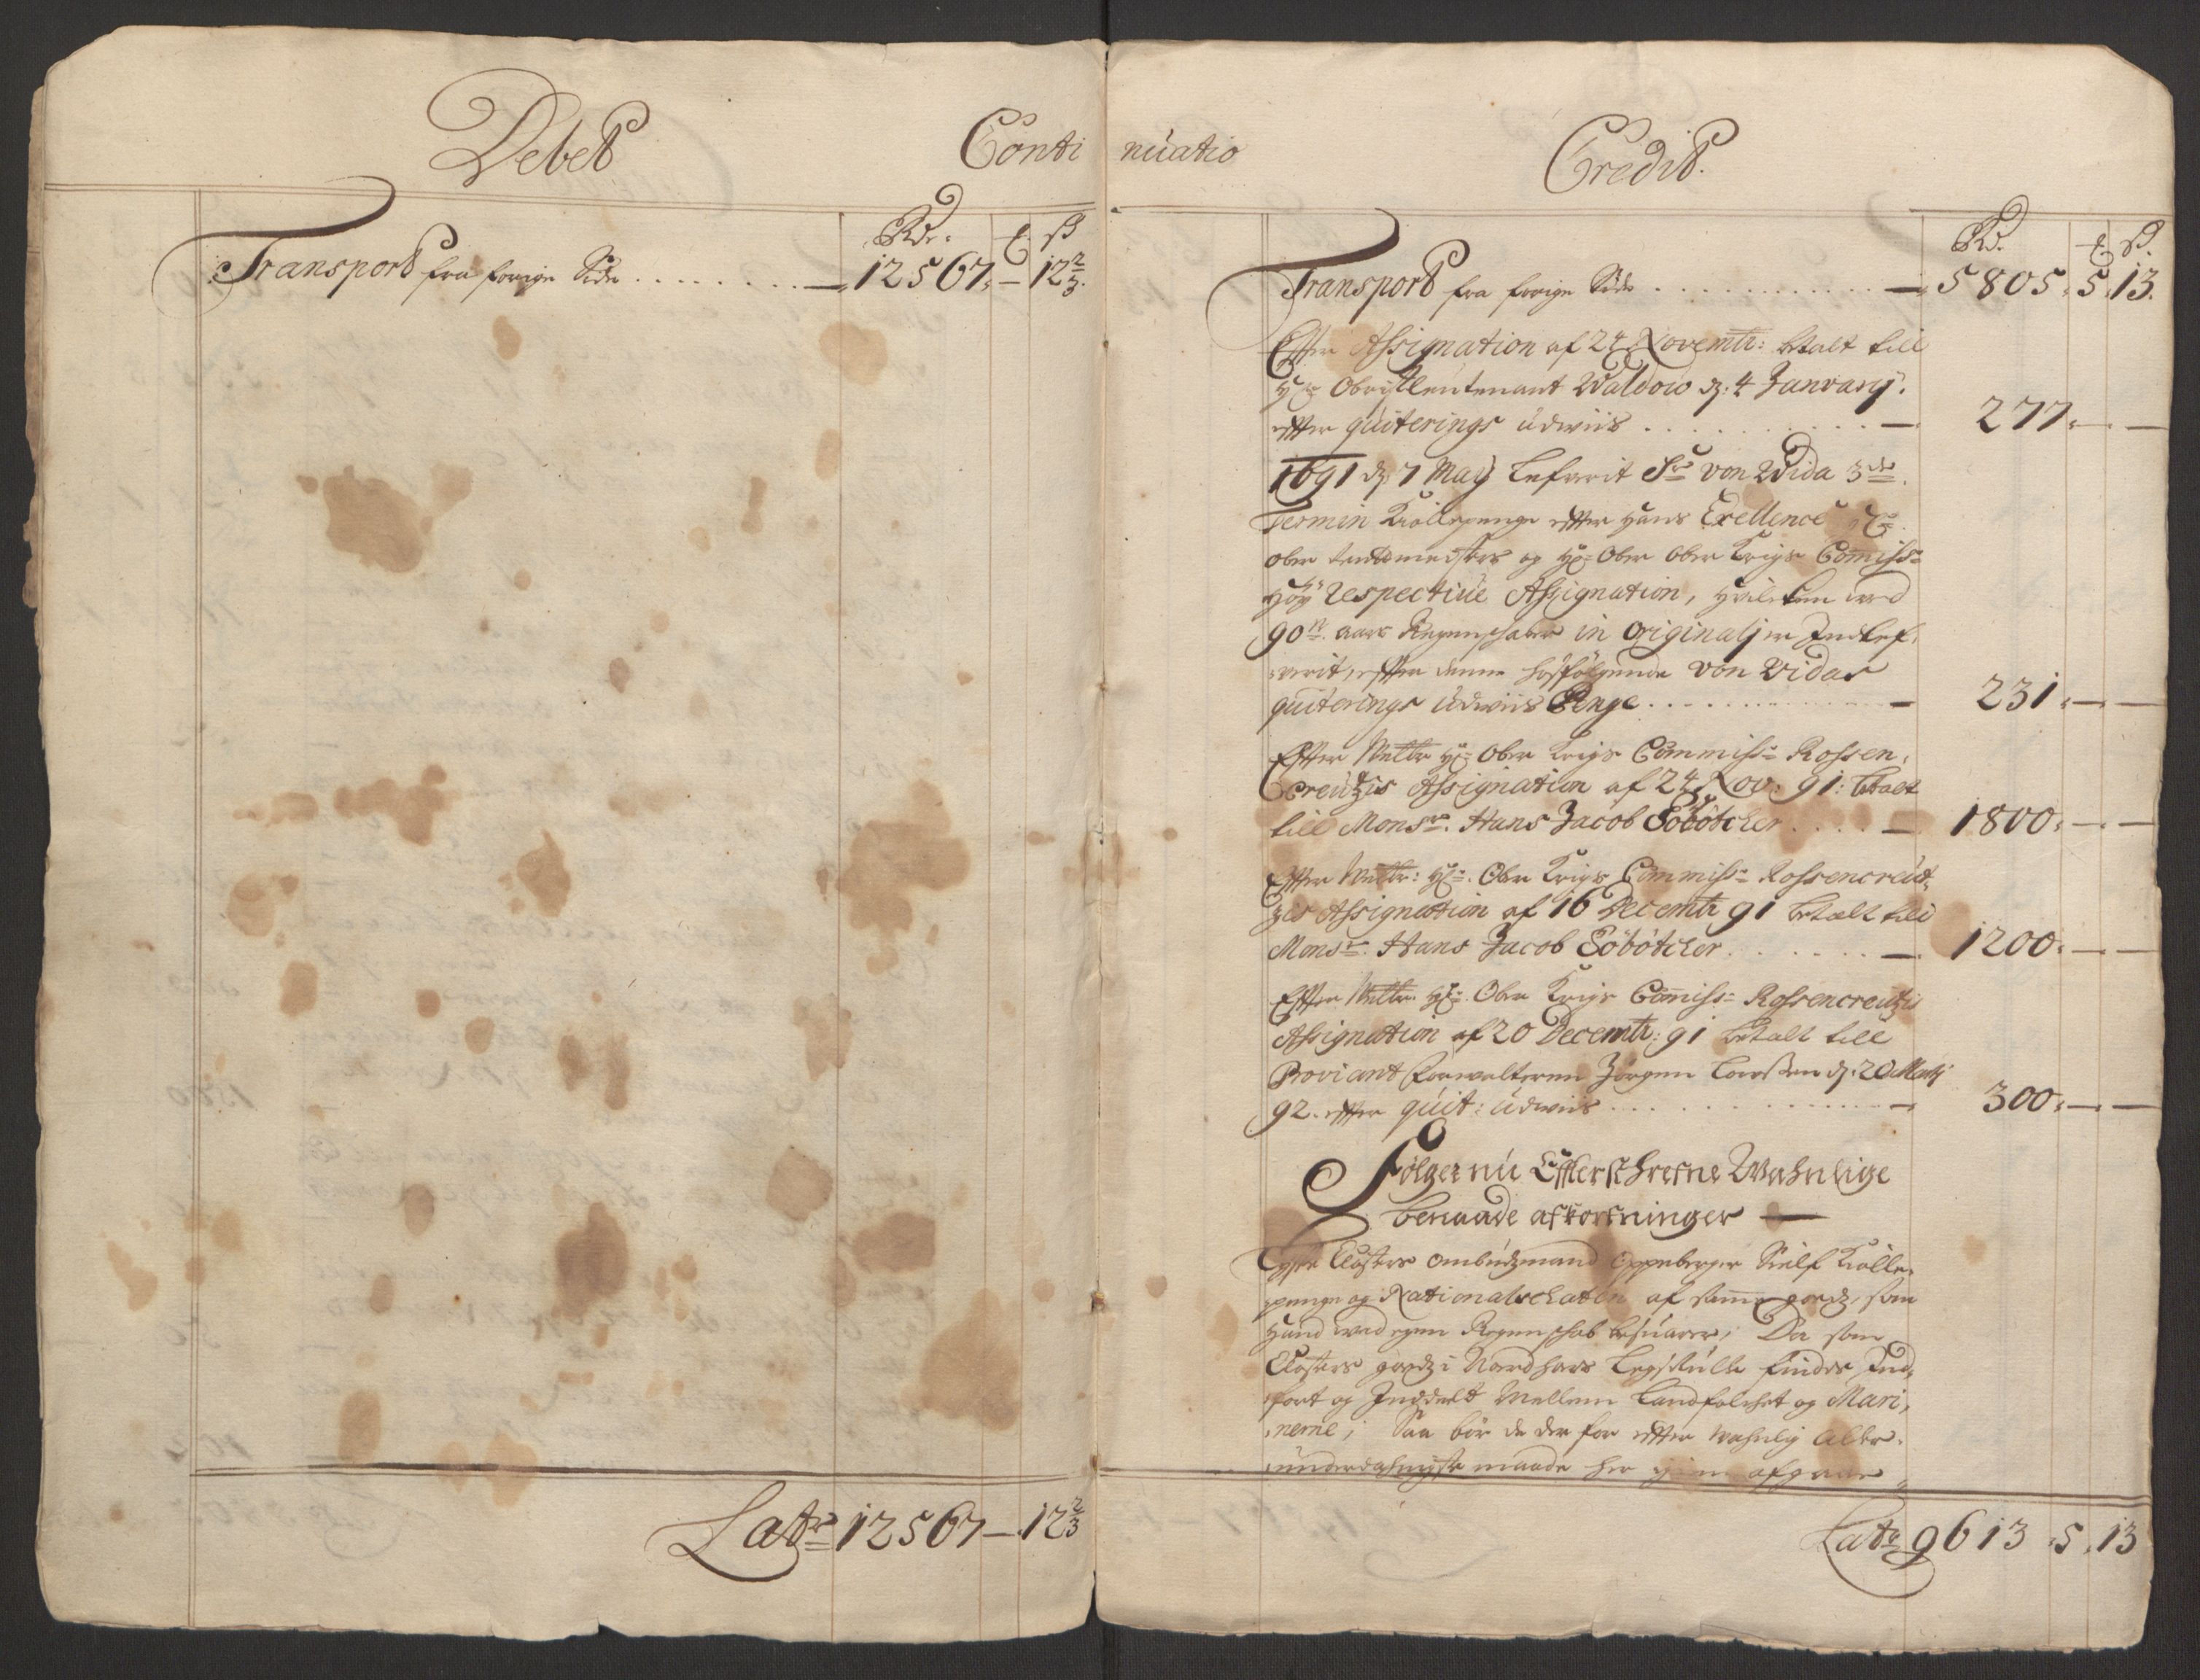 Debet
Conti
Rdr: ₰ ß
Transport fra forige Side . . . . . . . . — 12567 — 12 2/3.
Latr 12567 — 12 2/3
nuatio
Credit.
Rd. ₰ ß.
Transport fra forige Side . . . . . . . . . . — 5805. 5. 13.
Effter Assignation af 24 Novembr: betalt till
Hr Obristleutenant Waldow d: 4 Janvarij.
effter quiterings udwiis . . . . . . . . . . — 277. — —
1691 d 7 Maij Lefverit Sr von Wida 3de
Termin Kiollepenge effter Hans Exellence Hr
ober Rentemesters og Hr Ober Ober Krigs Commiss:
Høÿ respective Assignation, Hvilcken wed
90n. aars Regenschaber in originali er Indlef,
verit, effter denne hosfølgende von Vidas
quiterings udwiis Penge . . . . . . . . . . — 231. — —
Effter Welbr Hr Ober Krigs Commiss: Rossen,
Creutzis Assignation af 24 Nov: 91: betalt
till Monsr. Hans Jacob Söbötcher . . . . — 1800. — —
Effter Welbr: Hr. Ober Krigs Commiss: Rossencreut,
zis Assignation af 16 Decembr 91 betalt till
Monsr. Hans Jacob Söbötcher . . . . . . — 1200. — —
Effter Welbr. Hr. Ober Krigs Commiss: Rossencreutzis
Assignation af 20 Decembr: 91 betalt till
Proviant forwalteren Jørgen Larssen d: 20 Martj
92. effter quit: udwiis . . . . . . . . . . — 300. — —
Følger nu Effterschrefne Wahnlige
benaade afkortninger —
Lyse Closters Ombudzmand Oppeberger Sielf Kiolle,
penge og Nationalschatten af samme goedz, som
Hand wed egen Regenschab besuarer, Da som
Closters goedz i Nordhors Legskulle findes Ind,
fort og Inddeelt Mellem Landfolchet og Mari,
nerne; Saa bør de der for effter wahnlig Aller,
underdahnigste maade her igien afgaae
Latr 9613. 5. 13